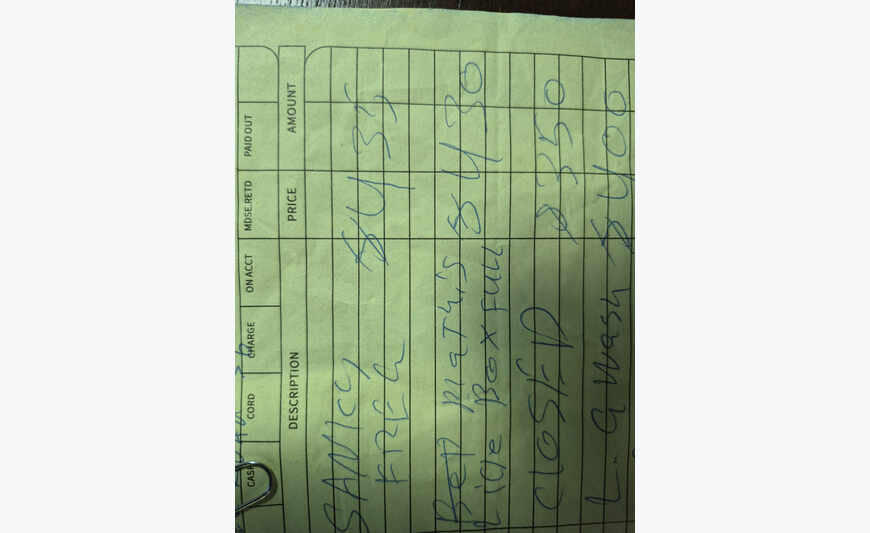 CASH CORD CHARGE ON ACCT MDSE.RETD PAID OUT
DESCRIPTION PRICE AMOUNT
$435
BED mathis $430
BOX FULL
CLOSED $350
L-G Wash $400